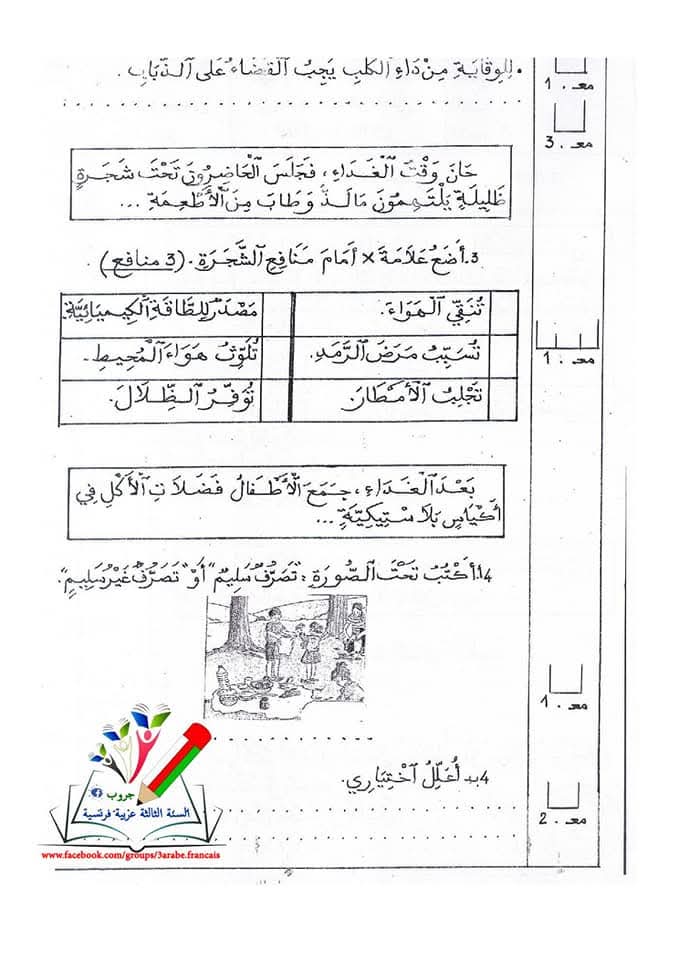 • لِلْوِقَايَةِ مِنْ دَاءِ الْكَلَبِ يَجِبُ الْقَضَاءُ عَلَى الذُّبَابِ.
معـ 1.
معـ 3.
حَانَ وَقْتُ الْغَدَاءِ، فَجَلَسَ الْحَاضِرُونَ تَحْتَ شَجَرَةٍ
ظَلِيلَةٍ يَلْتَهِمُونَ مَا لَذَّ وَطَابَ مِنَ الْأَطْعِمَةِ ...
3. أَضَعُ عَلَامَةَ × أَمَامَ مَنَافِعِ الشَّجَرَةِ. (3 منافع)
تُنَقِّي الْهَوَاءَ. مَصْدَرٌ لِلطَّاقَةِ الْكِيمِيَائِيَّةِ
تُسَبِّبُ مَرَضَ الرَّمَدِ. تُلَوِّثُ هَوَاءَ الْمُحِيطِ.
تَجْلِبُ الْأَمْطَارَ. تُوَفِّرُ الظِّلَالَ.
معـ 1.
بَعْدَ الْغَدَاءِ، جَمَعَ الْأَطْفَالُ فَضَلَاتِ الْأَكْلِ فِي
أَكْيَاسٍ بَلَاسْتِيكِيَّةٍ ...
4أ. أَكْتُبُ تَحْتَ الصُّورَةِ: "تَصَرُّفٌ سَلِيمٌ" أَوْ "تَصَرُّفٌ غَيْرُ سَلِيمٍ".
معـ 1.
4ب. أُعَلِّلُ اخْتِيَارِي.
معـ 2.
جروب
السنة الثالثة عربية فرنسية
www.facebook.com/groups/3arabe.francais